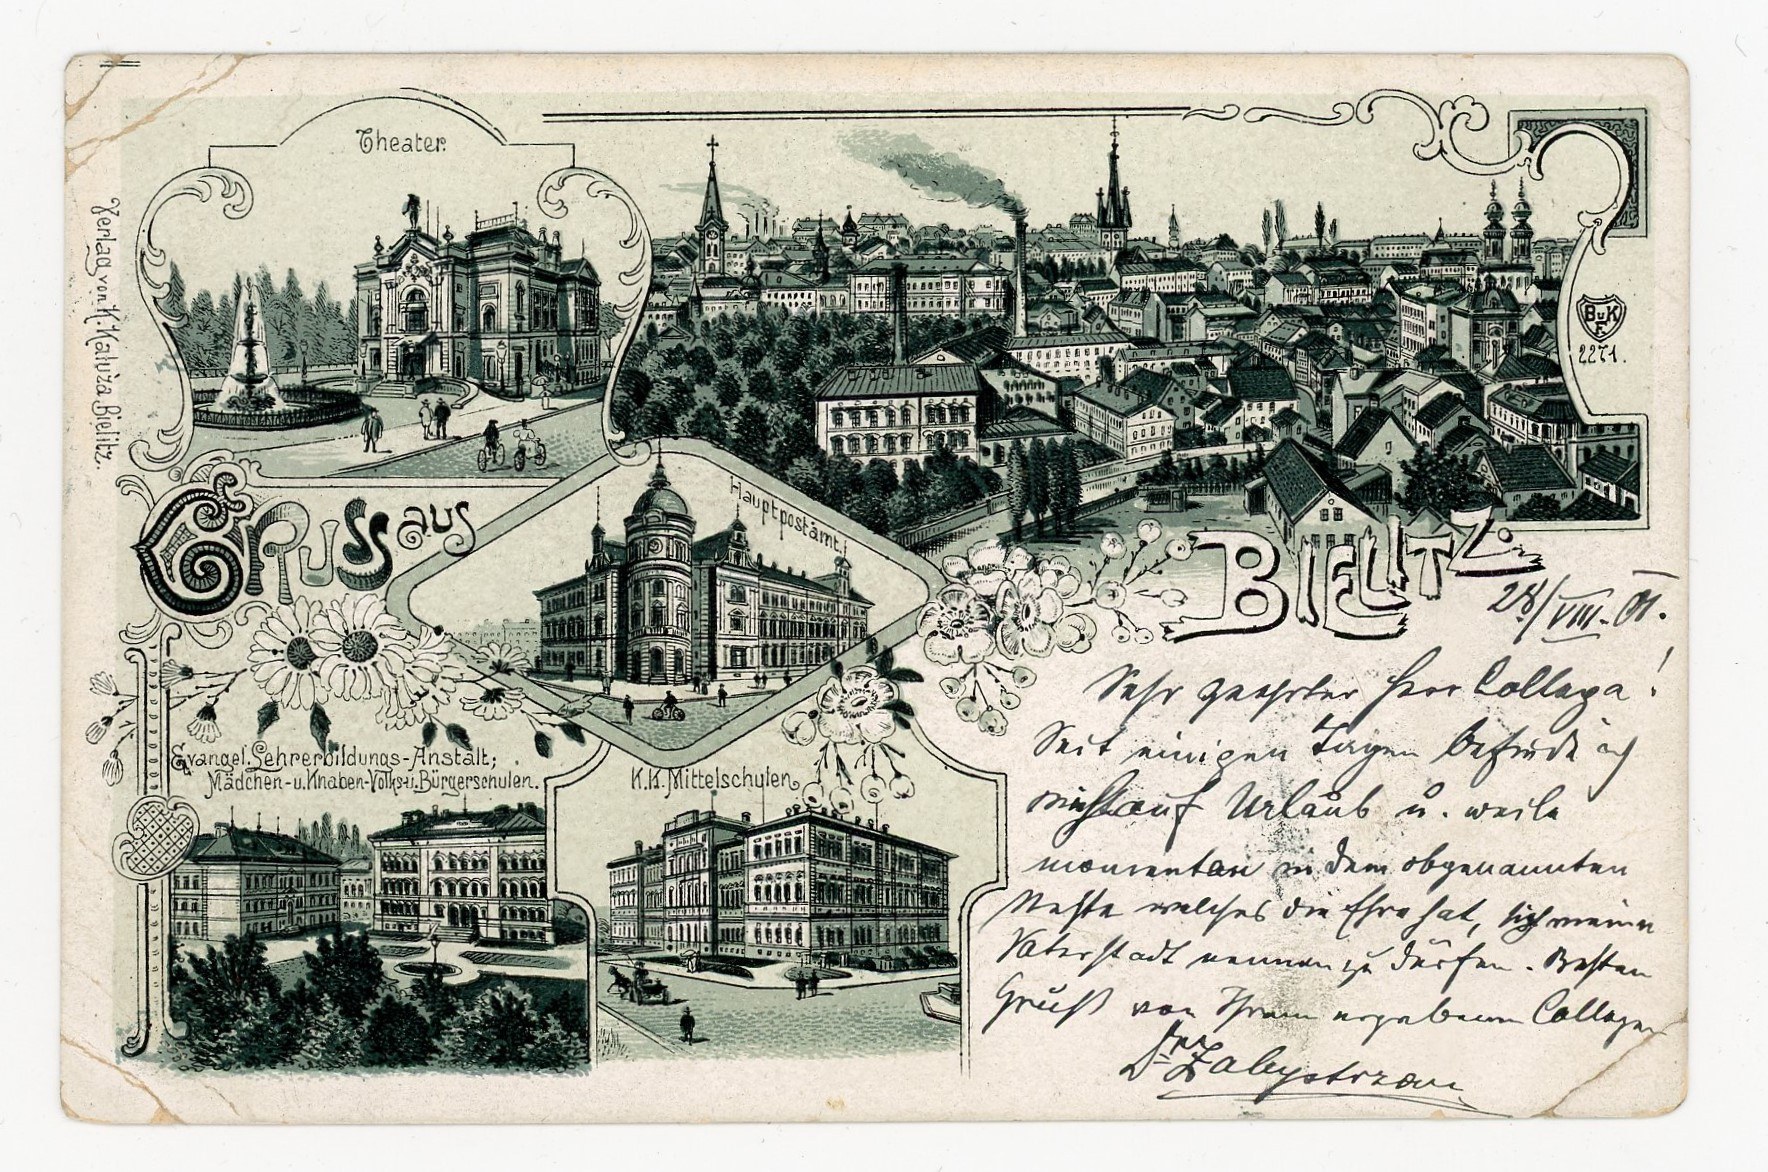 Theater.
Verlag von K. Kaluža, Bielitz.
B u K
F.
2271.
Gruss aus
Bielitz.
Hauptpostamt.
Evangel. Lehrerbildungs-Anstalt;
Mädchen- u. Knaben-Volks- u. Bürgerschulen.
K.K. Mittelschulen.
28/VIII. 01.
Sehr geehrter Herr Collega!
Seit einigen Tagen befinde ich
mich auf Urlaub u. weile
momentan in dem obgenannten
Neste welches die Ehre hat, sich meine
Vaterstadt nennen zu dürfen. Besten
Gruß von Ihrem ergebenen Collegen